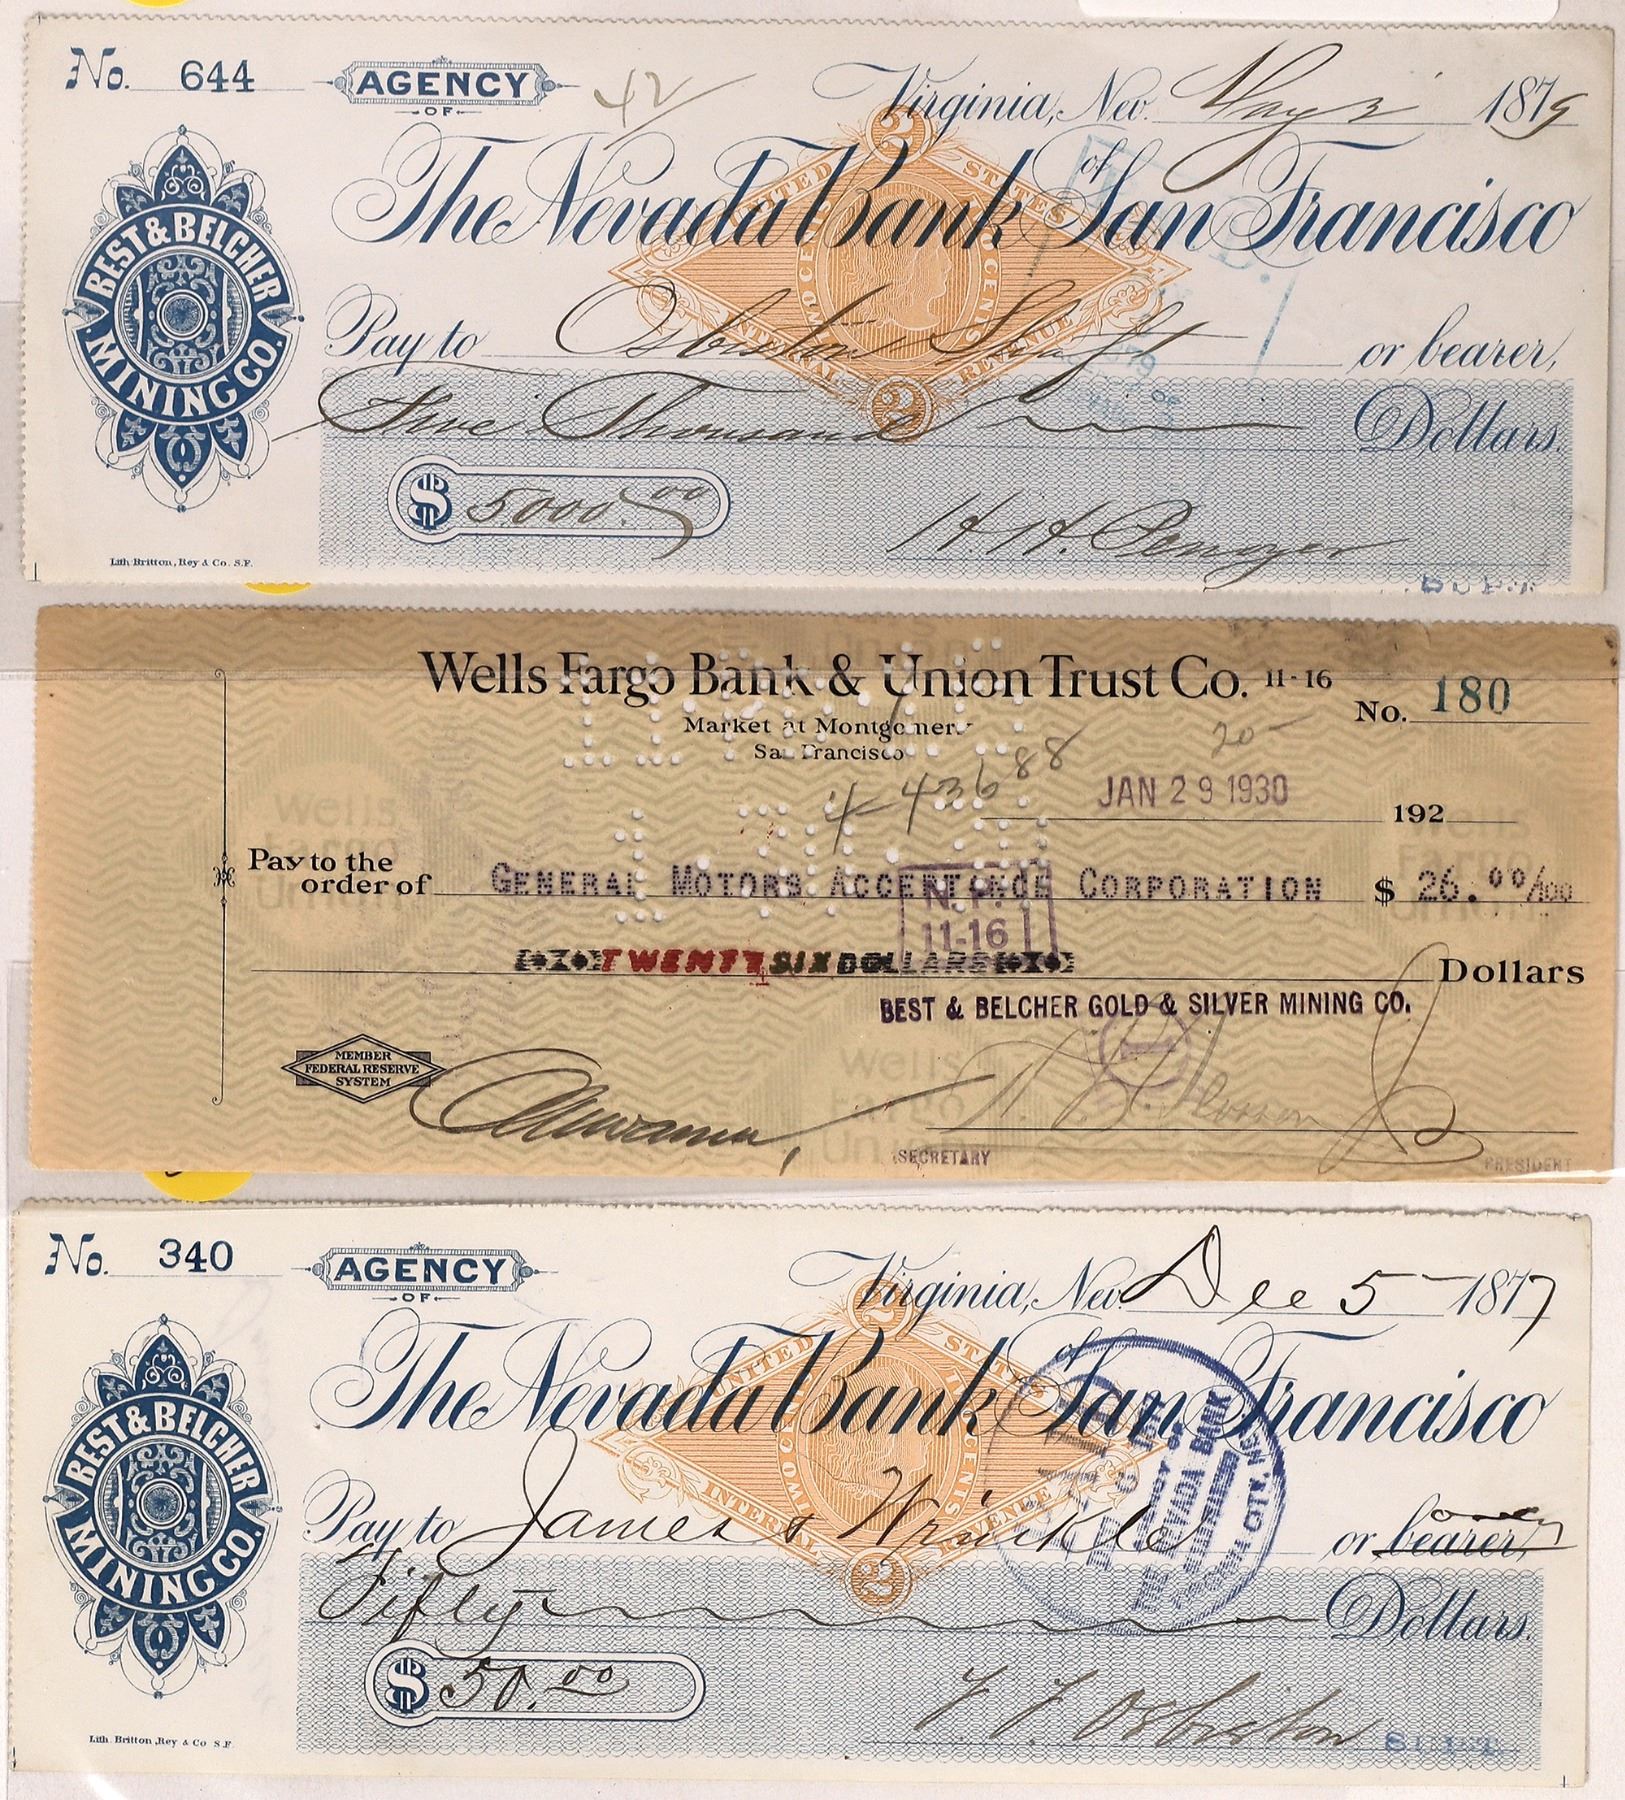 No. 644
AGENCY
OF
42
Virginia, Nev. May 2 1879
The Nevada Bank of San Francisco
UNITED STATES
INTERNAL REVENUE
TWO CENTS
2
2
BEST & BELCHER
MINING CO.
Pay to Osbiston Shaft or bearer,
Five Thousand Dollars.
$ 5000.00
H. H. Penoyer
Lith. Britton, Rey & Co. S.F.
Wells Fargo Bank & Union Trust Co. 11-16
No. 180
Market at Montgomery
San Francisco
20-
4436 88
JAN 29 1930
192
Pay to the
order of GENERAL MOTORS ACCEPTANCE CORPORATION $ 26.00/100
N. P.
11-16
TWENTY SIX DOLLARS Dollars
BEST & BELCHER GOLD & SILVER MINING CO.
MEMBER
FEDERAL RESERVE
SYSTEM
SECRETARY
PRESIDENT
No. 340
AGENCY
OF
Virginia, Nev. Dec 5 1877
The Nevada Bank of San Francisco
UNITED STATES
INTERNAL REVENUE
TWO CENTS
2
2
NEVADA BANK
BEST & BELCHER
MINING CO.
Pay to James & Wrinkle or bearer,
Fifty Dollars.
$ 50.00
F F Osbiston
SUPT.
Lith. Britton, Rey & Co S.F.